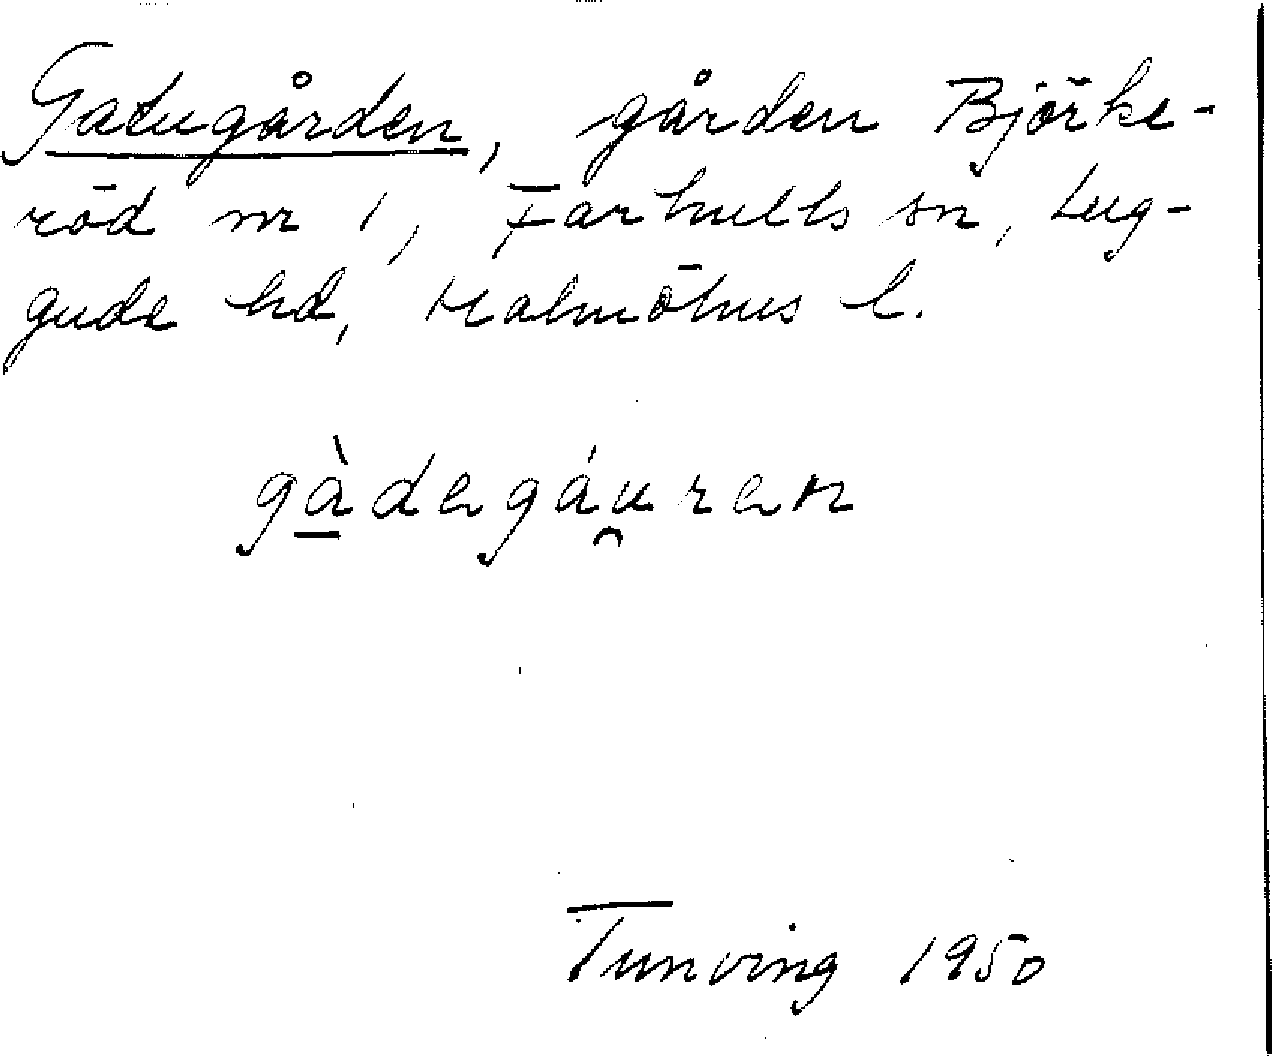 Gatugården, gården Björke-
röd nr 1, Farhults sn, Lug-
gude hd, Malmöhus l.
gàdegáu̯ren
Tunving 1950